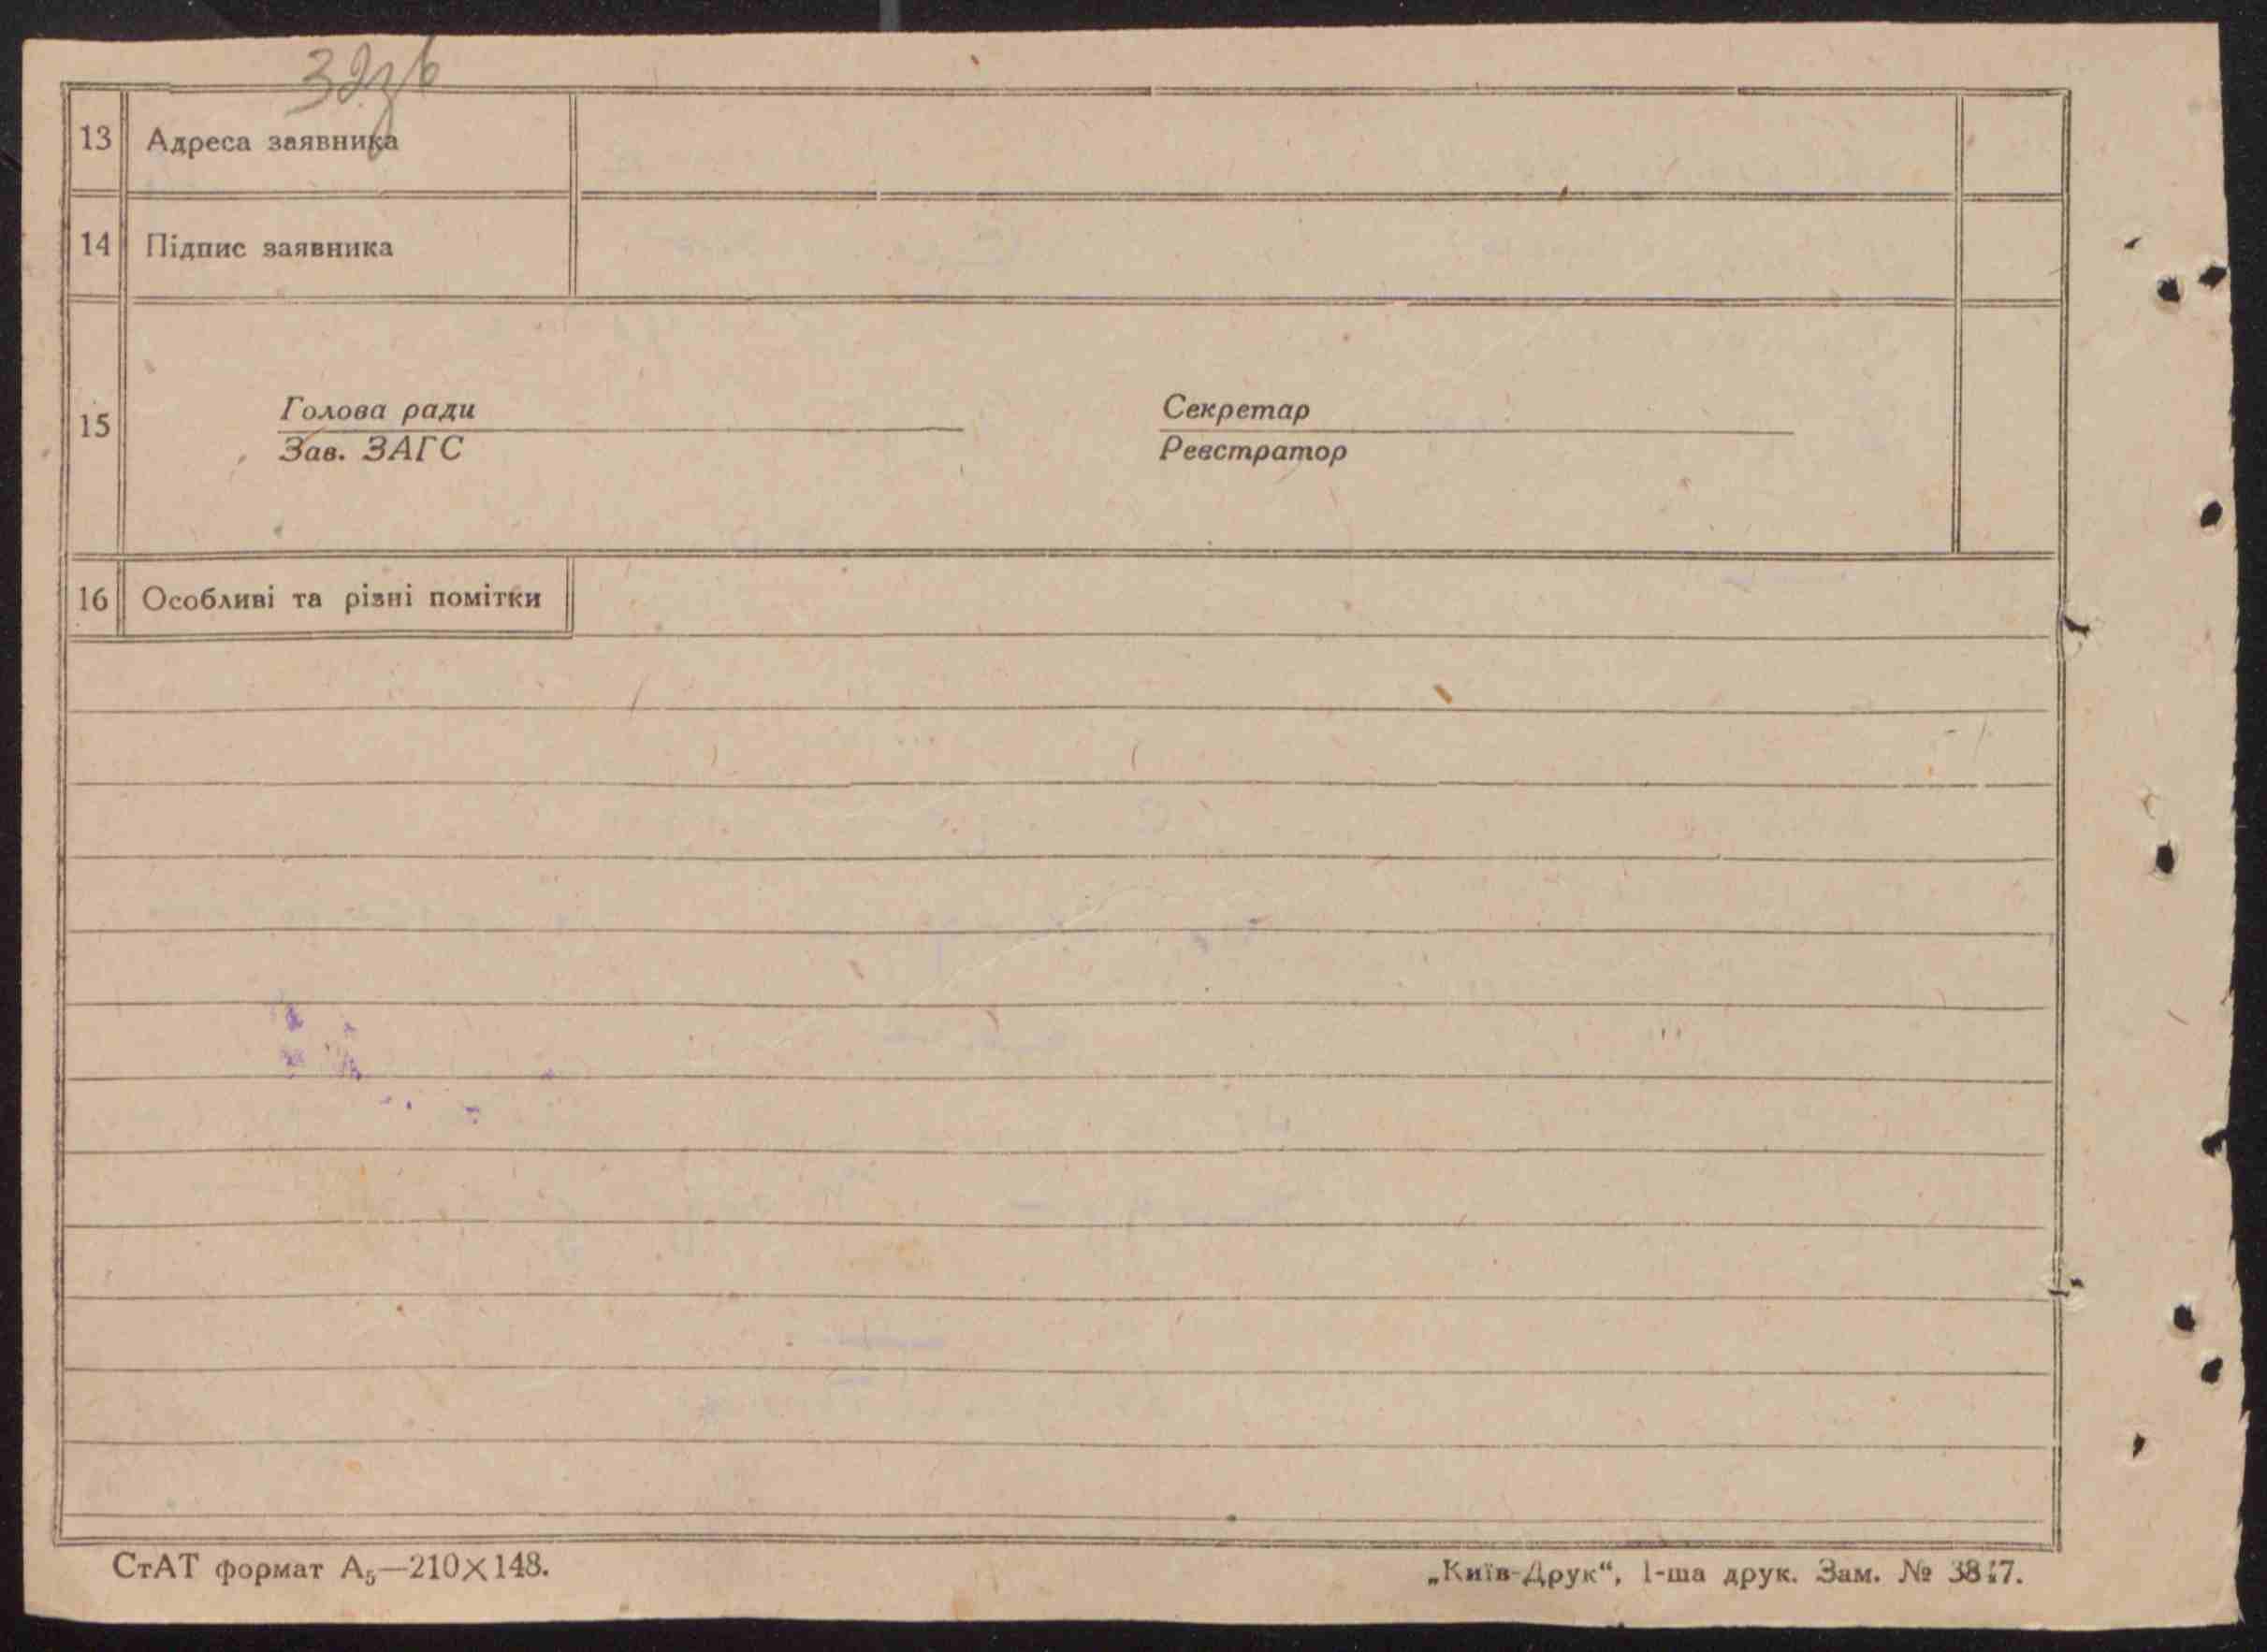 32зв
13 Адреса заявника
14 Підпис заявника
15 Голова ради Секретар
Зав. ЗАГС Реєстратор
16 Особливі та різні помітки
СтАТ формат А₅—210×148. „Київ-Друк“, 1-ша друк. Зам. №